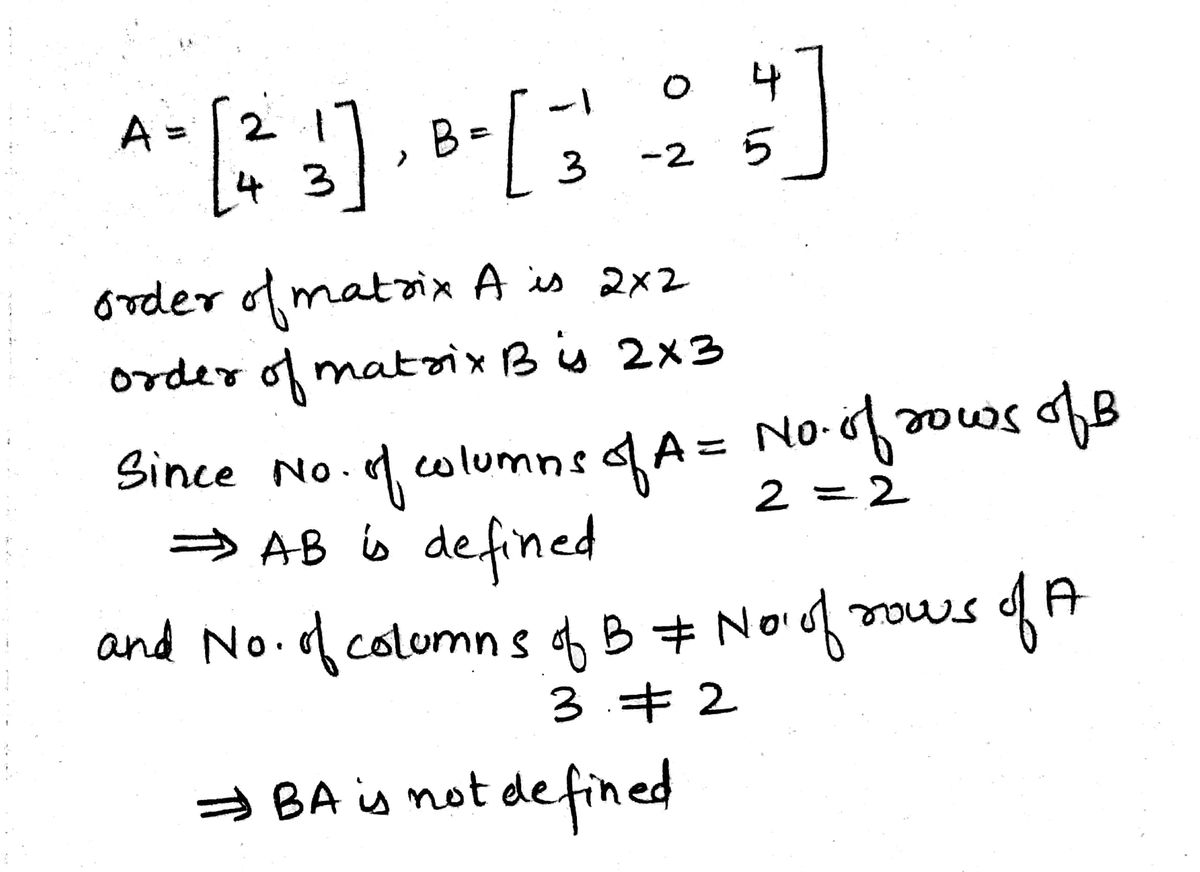 A = [2 1
4 3], B = [-1 0 4
3 -2 5]
order of matrix A is 2×2
order of matrix B is 2×3
Since No. of columns of A = No. of rows of B
2 = 2
⇒ AB is defined
and No. of columns of B ≠ No. of rows of A
3 ≠ 2
⇒ BA is not defined